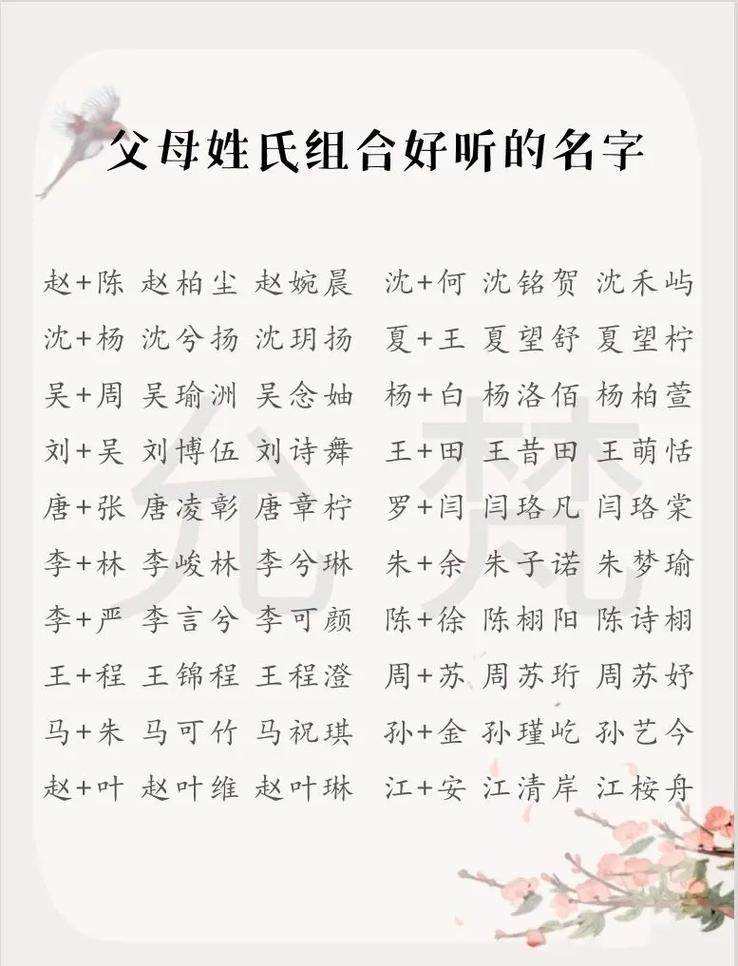 父母姓氏组合好听的名字
赵+陈 赵柏尘 赵婉晨 沈+何 沈铭贺 沈禾屿
沈+杨 沈兮扬 沈玥扬 夏+王 夏望舒 夏望柠
吴+周 吴瑜洲 吴念妯 杨+白 杨洛佰 杨柏萱
刘+吴 刘博伍 刘诗舞 王+田 王昔田 王萌恬
唐+张 唐凌彰 唐章柠 罗+闫 闫珞凡 闫珞棠
李+林 李峻林 李兮琳 朱+余 朱子诺 朱梦瑜
李+严 李言兮 李可颜 陈+徐 陈栩阳 陈诗栩
王+程 王锦程 王程澄 周+苏 周苏珩 周苏妤
马+朱 马可竹 马祝琪 孙+金 孙瑾屹 孙艺今
赵+叶 赵叶维 赵叶琳 江+安 江清岸 江桉舟
允梵